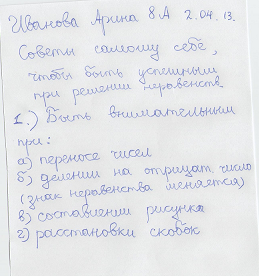 Иванова Арина 8.А 2.04.13.
Советы самому себе,
чтобы быть успешным
при решении неравенств.
1.) Быть внимательным
при:
а) переносе чисел
б) делении на отрицат. число
(знак неравенства меняется)
в) составлении рисунка
г) расстановки скобок